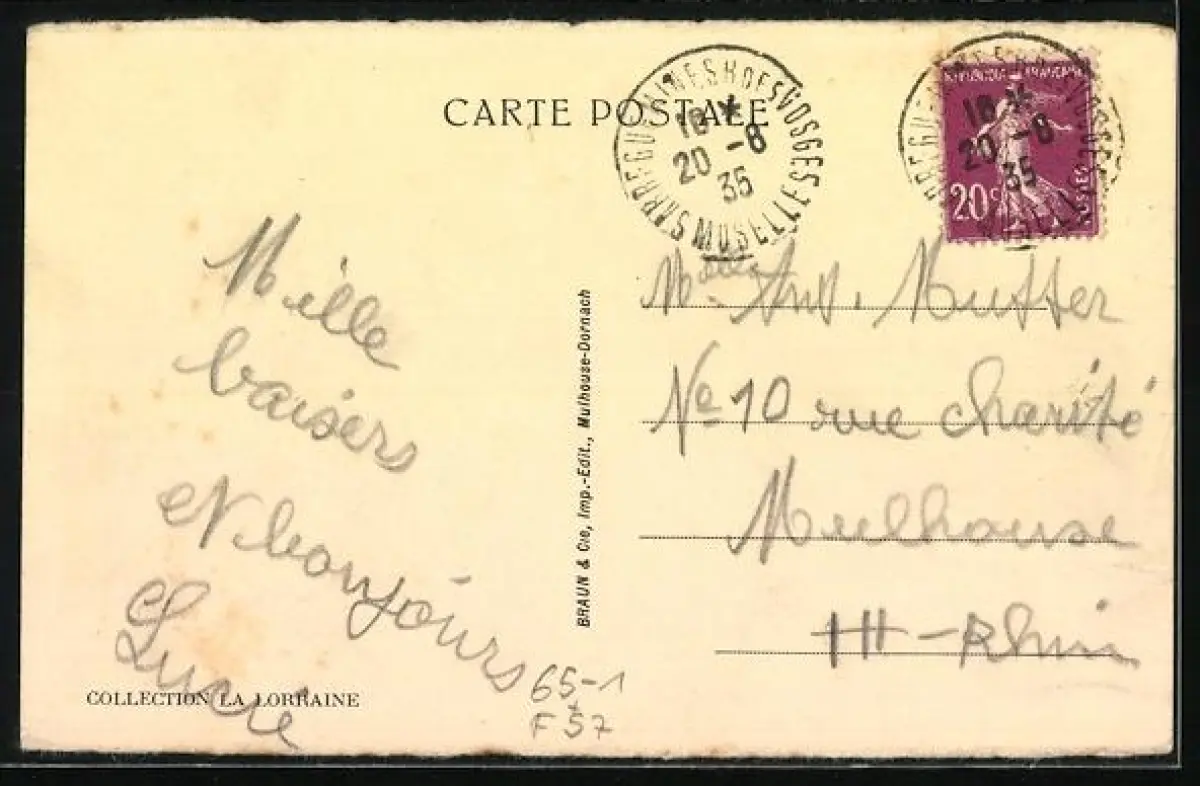 CARTE POSTALE
SARREGUEMINES HOFS VOSGES
18 *
20 -8
35
MOSELLE
REPUBLIQUE FRANÇAISE
18 *
20 -8
35
20c
Mille
baisers
et bonjours
Lucie
BRAUN & Cie, Imp.-Edit., Mulhouse-Dornach
Melle Ant. Mutter
No 10 rue charité
Mulhouse
Ht-Rhin
COLLECTION LA LORRAINE
65-1
F 57